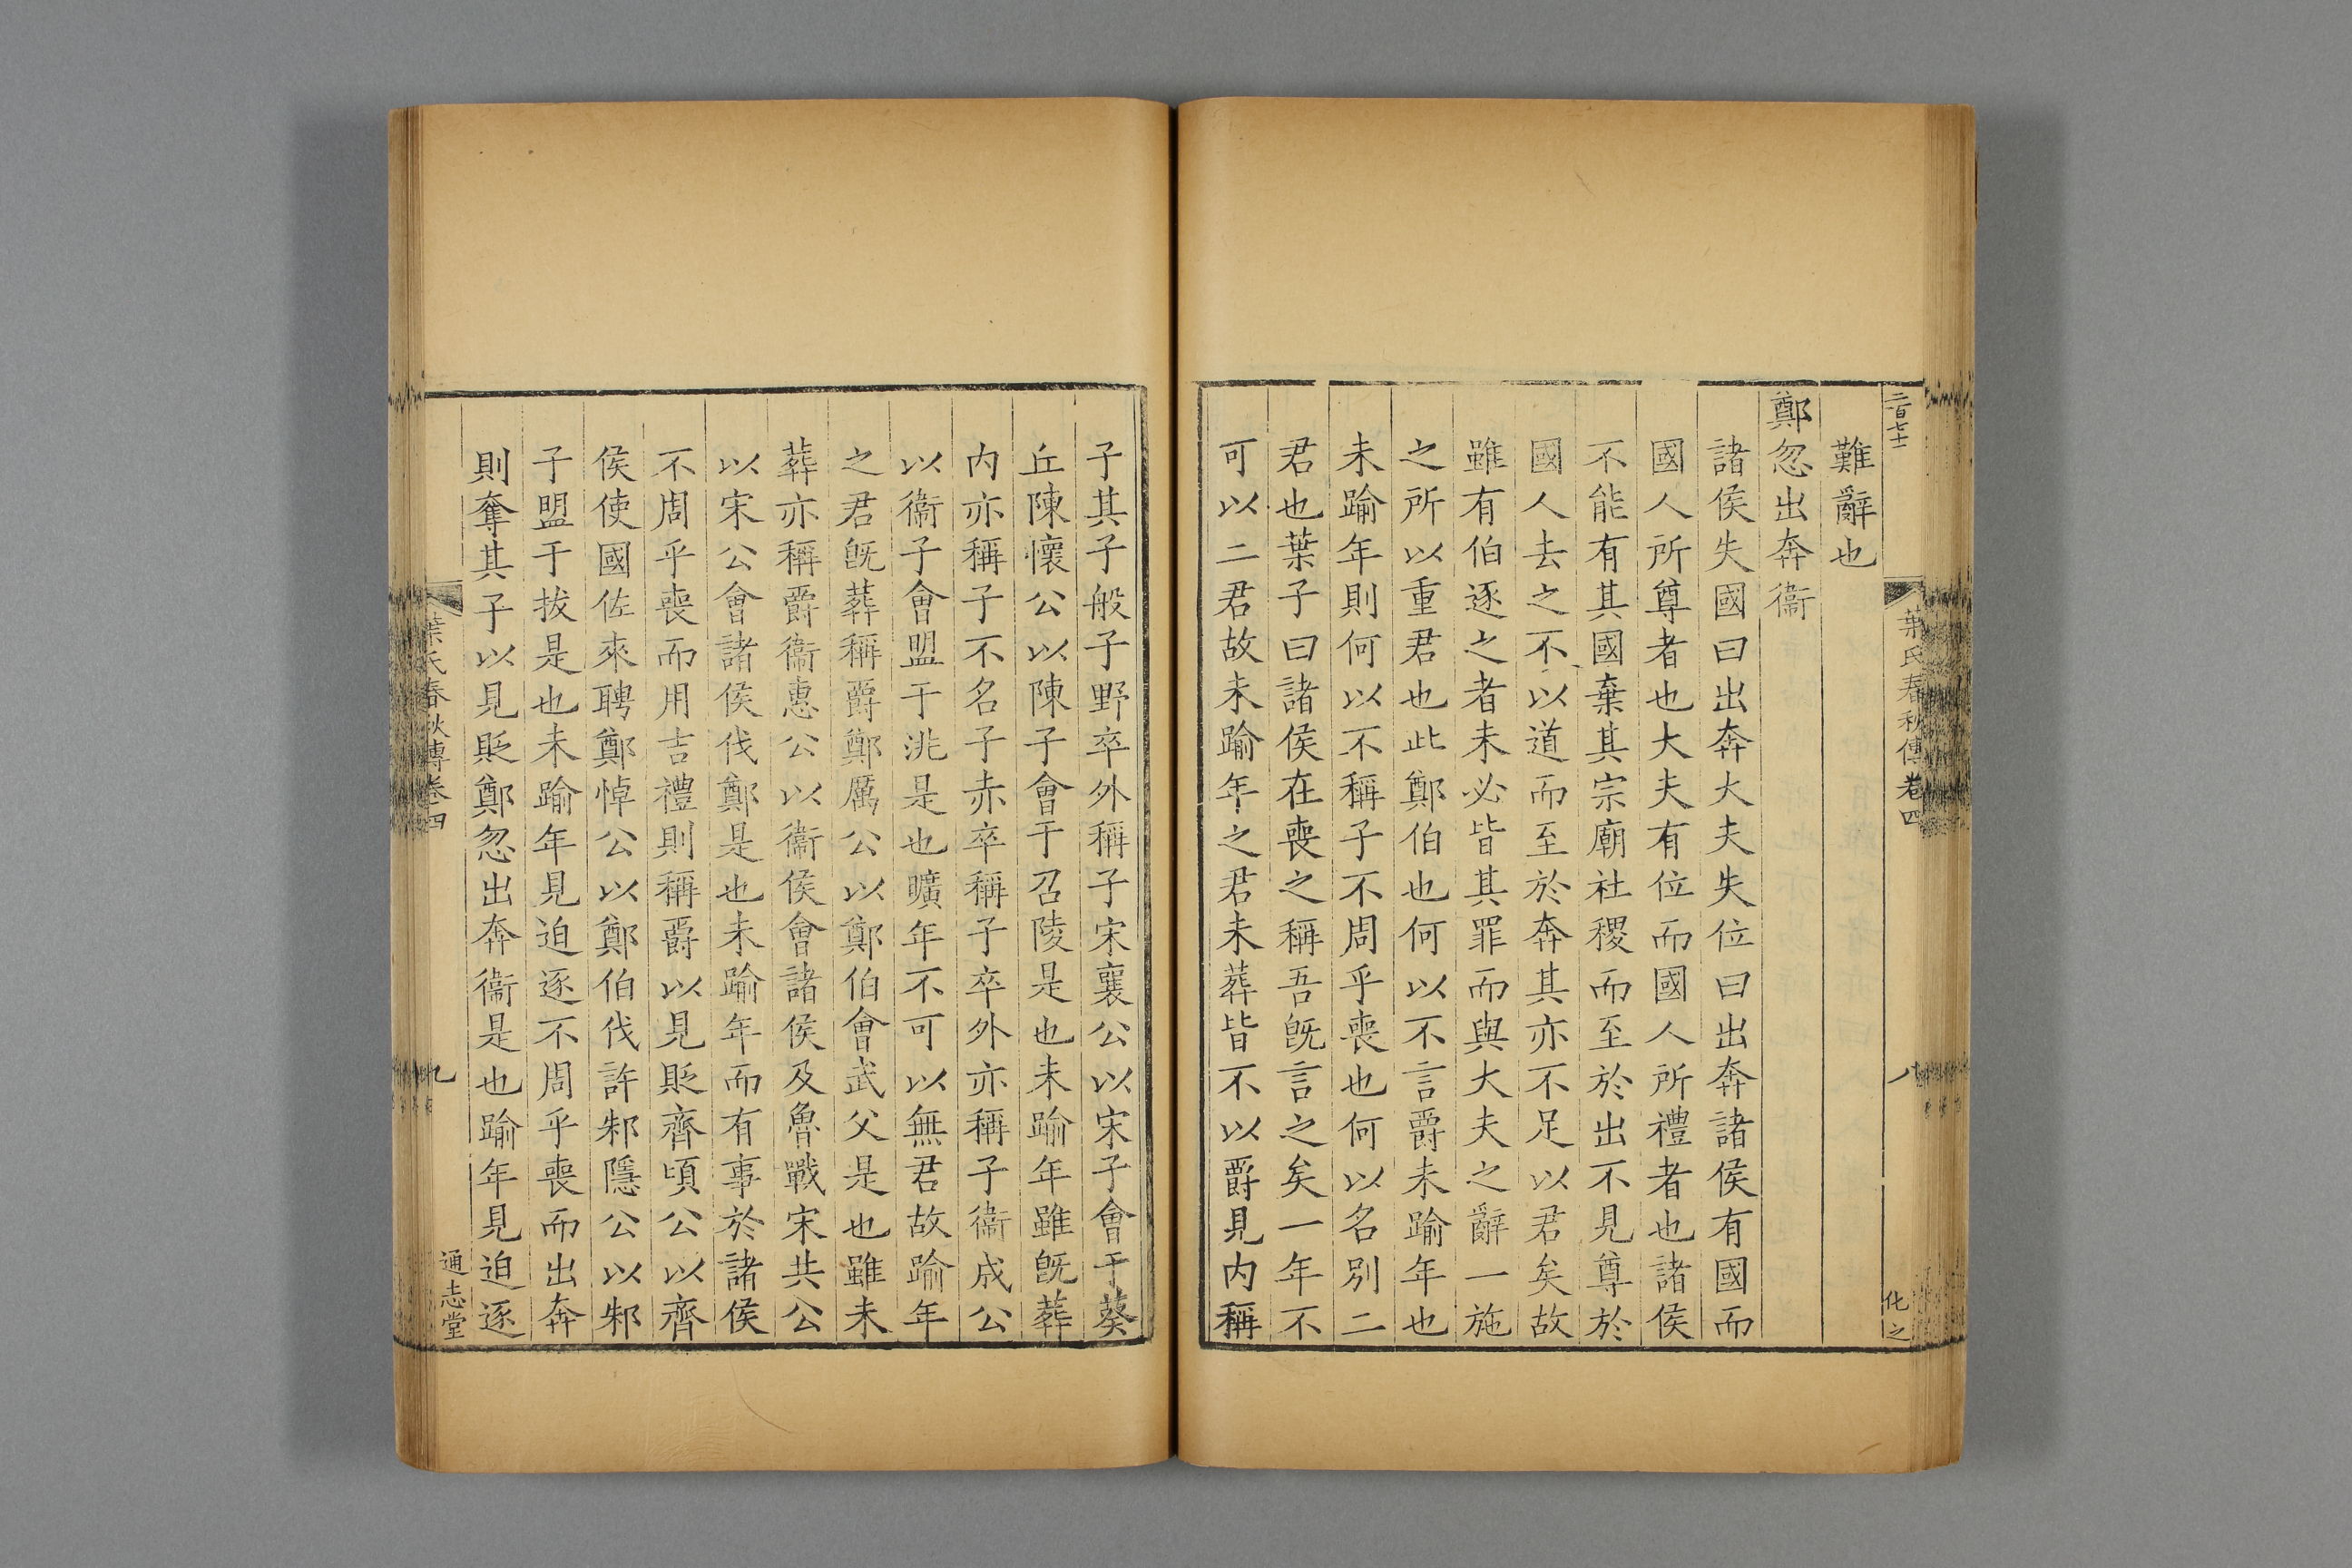 二百七十
葉氏春秋傳卷四
八
化之
難辭也
鄭忽出奔衞
諸侯失國曰出奔大夫失位曰出奔諸侯有國而
國人所尊者也大夫有位而國人所禮者也諸侯
不能有其國棄其宗廟社稷而至於出不見尊於
國人去之不以道而至於奔其亦不足以君矣故
雖有伯逐之者未必皆其罪而與大夫之辭一施
之所以重君也此鄭伯也何以不言爵未踰年也
未踰年則何以不稱子不周乎喪也何以名別二
君也葉子曰諸侯在喪之稱吾旣言之矣一年不
可以二君故未踰年之君未葬皆不以爵見内稱
子其子般子野卒外稱子宋襄公以宋子會于葵
丘陳懷公以陳子會于召陵是也未踰年雖旣葬
内亦稱子不名子赤卒稱子卒外亦稱子衞成公
以衞子會盟于洮是也曠年不可以無君故踰年
之君旣葬稱爵鄭厲公以鄭伯會武父是也雖未
葬亦稱爵衞惠公以衞侯會諸侯及魯戰宋共公
以宋公會諸侯伐鄭是也未踰年而有事於諸侯
不周乎喪而用吉禮則稱爵以見貶齊頃公以齊
侯使國佐來聘鄭悼公以鄭伯伐許邾隱公以邾
子盟于拔是也未踰年見迫逐不周乎喪而出奔
則奪其子以見貶鄭忽出奔衞是也踰年見迫逐
葉氏春秋傳卷四
九
通志堂